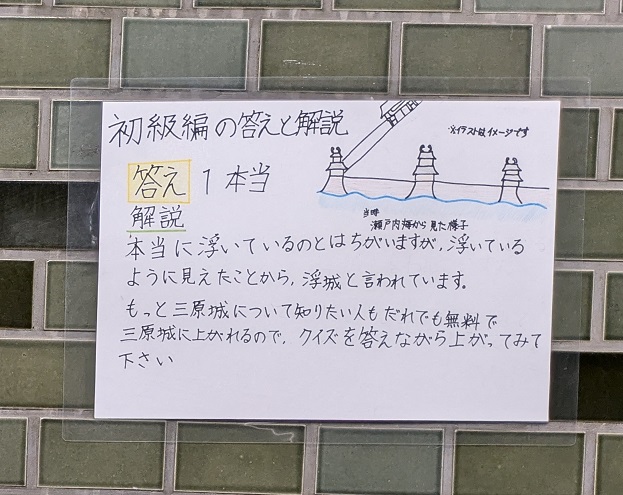 初級編の答えと解説
※イラストはイメージです
答え 1 本当
当時
瀬戸内海から見た様子
解説
本当に浮いているのとはちがいますが,浮いている
ように見えたことから,浮城と言われています。
もっと三原城について知りたい人もだれでも無料で
三原城に上がれるので,クイズを答えながら上がってみて
下さい